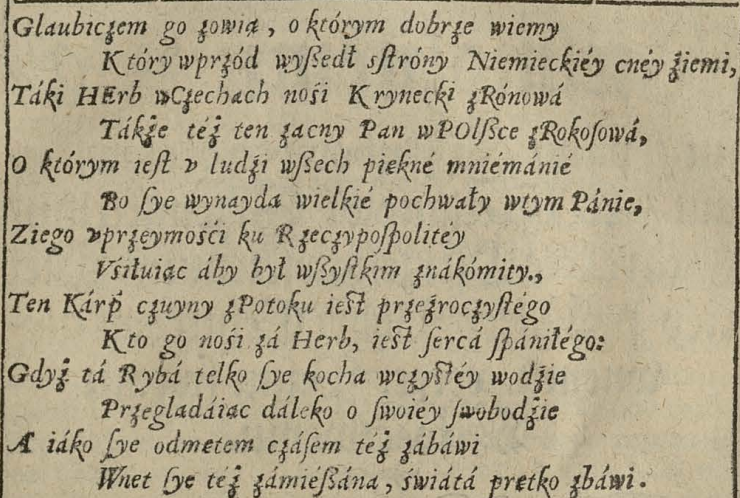 Glaubiczem go zowią, o którym dobrze wiemy
Który wprzód wyßedł sstróny Niemieckiéy cnéy źiemi,
Táki HErb wCzechach nośi Krynecki zRónowá
Tákże téż ten zacny Pan wPOlßce zRokosowá,
O którym iest v ludźi wßech piękné mniémánié
Bo sye wynayda wielkié pochwały wtym Pánie,
Ziego vprzeymośći ku Rzeczypospolitéy
Vśiłuiąc áby był wßystkim znákómity.,
Ten Kárṕ czuyny zPotoku iest przeźroczystégo
Kto go nośi zá Herb, iest sercá spániłégo:
Gdyż tá Rybá telko sye kocha wczystéy wodźie
Przegladáiac dáleko o swoiéy swobodźie
A iáko sye odmetem czásem téż zábáwi
Wnet sye téż zámiéßána, świátá prętko zbáwi.